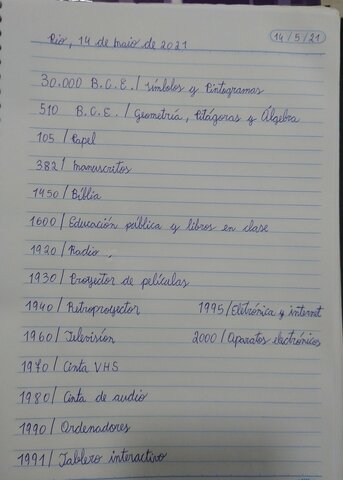 14/5/21
Rio, 14 de maio de 2021
30.000 B.C.E. / Símbolos y Pintogramas
510 B.C.E. / Geometría, Pitágoras y Álgebra
105 / Papel
382 / Manuscritos
1450 / Bíblia
1600 / Educación pública y libros en clase
1920 / Radio
1930 / Proyector de películas
1940 / Retroproyector 1995 / Eletrónica y internet
1960 / Televisíon 2000 / Aparatos electrónicos
1970 / Cinta VHS
1980 / Cinta de audio
1990 / Ordenadores
1991 / Tablero interactivo